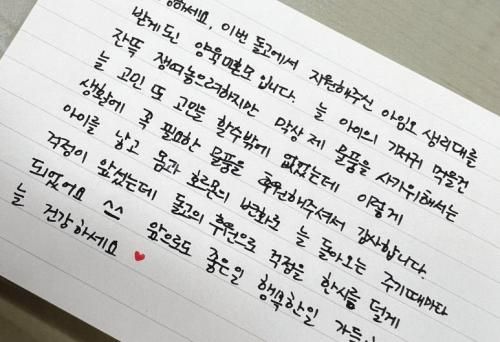 하세요, 이번 돌고에서 지원해주신 아임오 생리대를
받게된 양육미혼모 입니다. 늘 아이의 기저귀 먹을건
잔뜩 쟁여놓으려하지만 막상 제 물품을 사기위해서는
늘 고민 또 고민을 할수밖에 없었는데 이렇게
생활에 꼭 필요한 물품을 후원해주셔서 감사합니다.
아이를 낳고 몸과 호르몬의 변화로 늘 돌아오는 주기때마다
걱정이 앞섰는데 돌고의 후원으로 걱정을 한시름 덜게
되었어요 ^^ 앞으로도 좋은일 행복한일 가득
늘 건강하세요 ♥